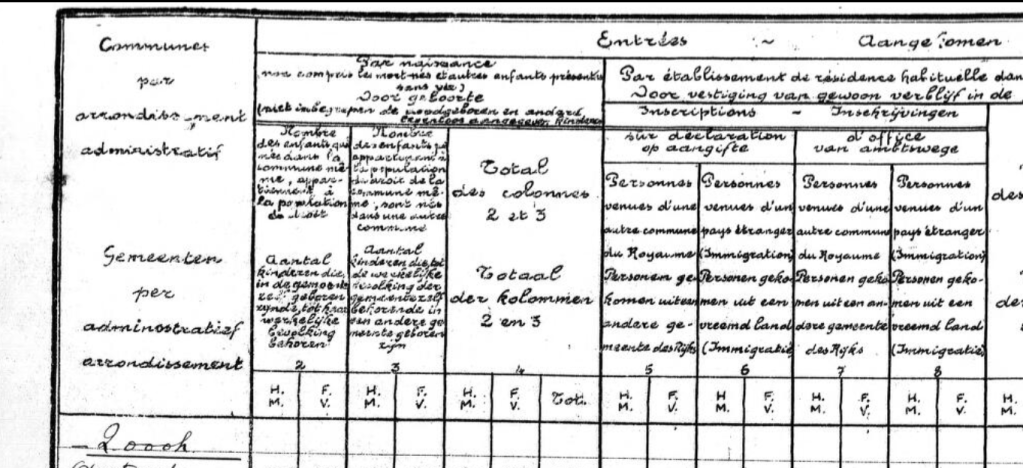 Communes
par
arrondissement
administratif
Gemeenten
per
administratief
arrondissement
Entrées ~ Aangekomen
Par naissance
non compris les mort-nés et autres enfants présentés
sans vie)
Door geboorte
(niet inbegrepen de doodgeboren en andere
levenloos aangegeven kinderen
Nombre
des enfants qui
nés dans la
commune mê-
me, appar-
tiennent à
la population
de droit
Aantal
kinderen die,
in de gemeente
geboren
zijnde, tot haar
werkelijke
bevolking
behoren
2
Nombre
des enfants
appartenant à
la population
de droit de la
commune mê-
me, sont nés
dans une autre
commune
Aantal
kinderen die, tot
de werkelijke
bevolking der
gemeente zelf
behorende in
een andere ge-
meente geboren
zijn
3
Total
des colonnes
2 et 3
Totaal
der kolommen
2 en 3
4
Par établissement de résidence habituelle dan
Door vestiging van gewoon verblijf in de
Inscriptions - Inschrijvingen
sur déclaration
op aangifte
d'office
van ambtswege
Personnes
venues d'une
autre commune
du Royaume
Personen ge-
komen uit een
andere ge-
meente des Rijks
5
Personnes
venues d'un
pays étranger
(Immigration)
Personen geko-
men uit een
vreemd land
(Immigratie)
6
Personnes
venues d'une
autre commune
du Royaume
Personen geko-
men uit een an-
dere gemeente
des Rijks
7
Personnes
venues d'un
pays étranger
(Immigration)
Personen geko-
men uit een
vreemd land
(Immigratie)
8
des
de
H. F. H. F. H. F. Tot. H. F. H F. H. F. H. F. H.
M. V. M. V. M. V. M. V. M. V. M. V. M. V. M.